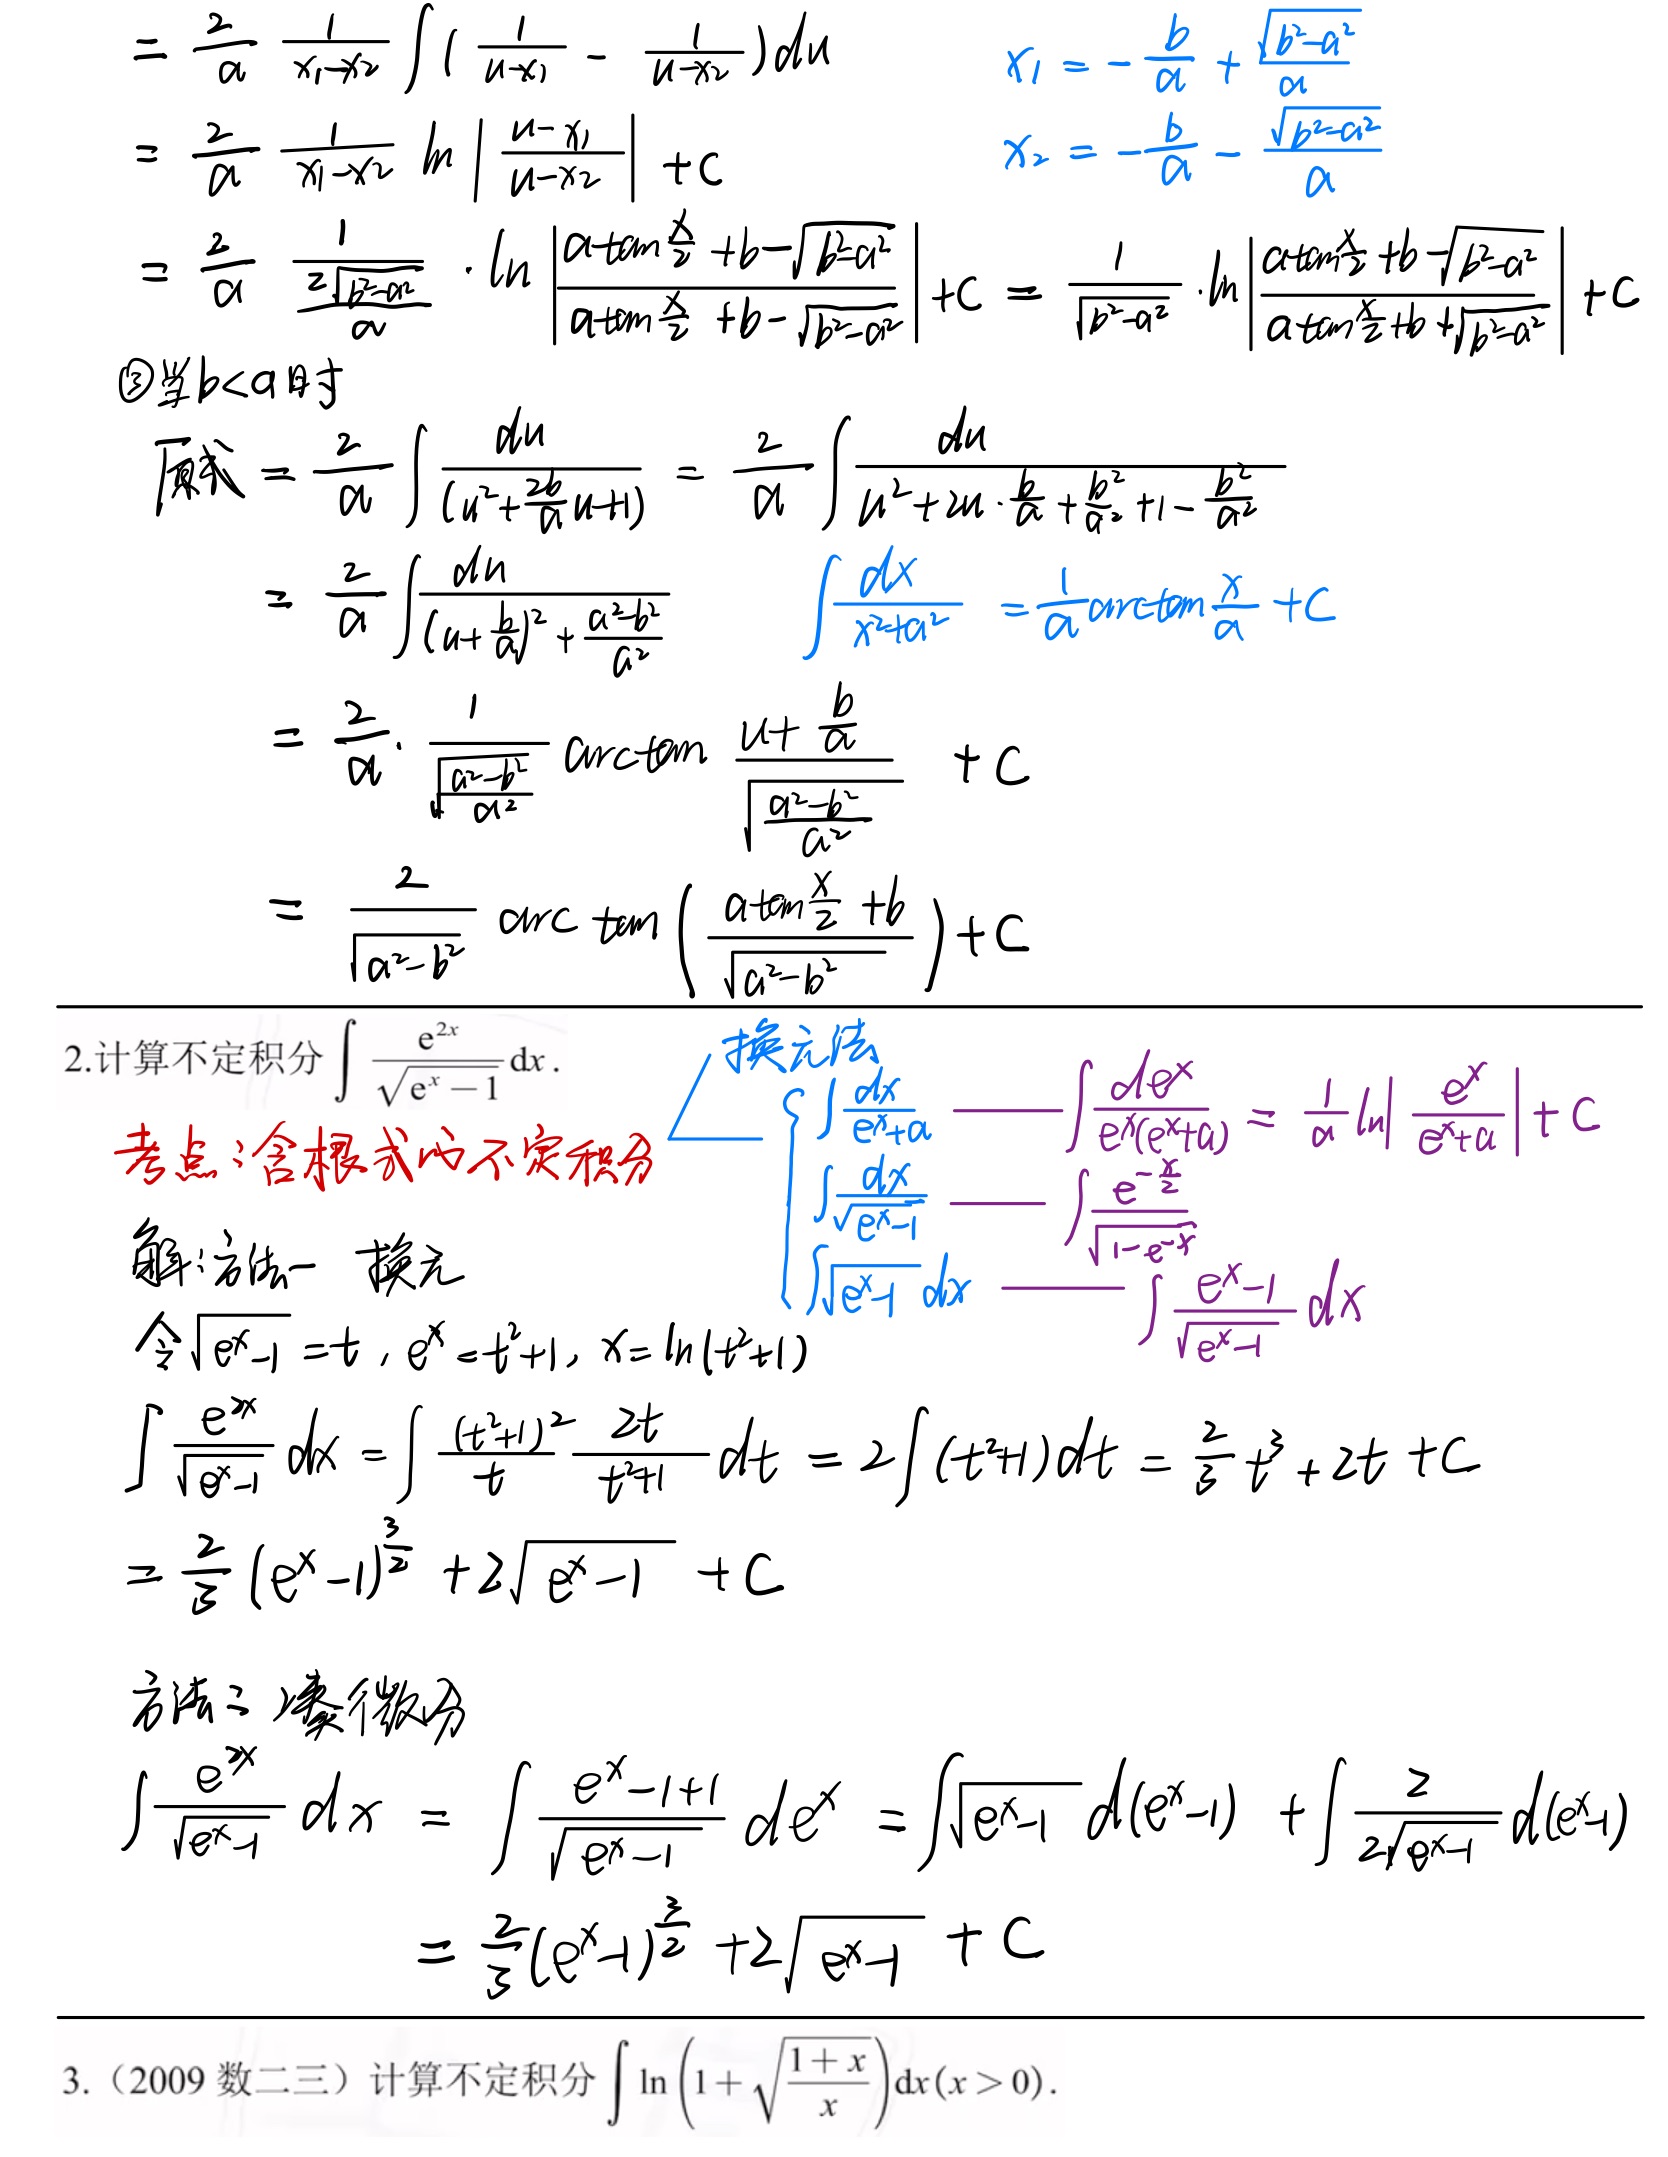 = 2/a 1/(x₁-x₂) ∫( 1/(u-x₁) - 1/(u-x₂) )du
x₁ = -b/a + √(b²-a²)/a
= 2/a 1/(x₁-x₂) ln| (u-x₁)/(u-x₂) | +C
x₂ = -b/a - √(b²-a²)/a
= 2/a 1/(2√(b²-a²)/a) · ln| (a tan x/2 + b - √(b²-a²))/(a tan x/2 + b - √(b²-a²)) | +C = 1/√(b²-a²) · ln| (a tan x/2 + b - √(b²-a²))/(a tan x/2 + b + √(b²-a²)) | +C
③当b<a时
原式 = 2/a ∫ du/(u²+2b/a u+1) = 2/a ∫ du/(u²+2u·b/a+b²/a²+1-b²/a²)
= 2/a ∫ du/((u+b/a)²+(a²-b²)/a²)
∫ dx/(x²+a²) = 1/a arctan x/a +C
= 2/a · 1/√((a²-b²)/a²) arctan (u+b/a)/√((a²-b²)/a²) +C
= 2/√(a²-b²) arc tan( (a tan x/2 +b)/√(a²-b²) )+C
2.计算不定积分∫ e^{2x}/√(e^x-1) dx.
换元法
∫ dx/(e^x+a) —— ∫ de^x/(e^x(e^x+a)) = 1/a ln| e^x/(e^x+a) |+C
考点:含根式的不定积分
∫ dx/√(e^x-1) —— ∫ e^{-x/2}/√(1-e^{-x})
解:方法一 换元
∫√(e^x-1) dx —— ∫ (e^x-1)/√(e^x-1) dx
令√(e^x-1)=t, e^x=t²+1, x=ln(t²+1)
∫ e^{2x}/√(e^x-1) dx = ∫ (t²+1)²/t 2t/(t²+1) dt = 2∫(t²+1)dt = 2/3 t³+2t+C
= 2/3 (e^x-1)^{3/2} +2√(e^x-1) +C
方法二 凑微分
∫ e^{2x}/√(e^x-1) dx = ∫ (e^x-1+1)/√(e^x-1) de^x = ∫√(e^x-1) d(e^x-1) + ∫ 2/(2√(e^x-1)) d(e^x-1)
= 2/3(e^x-1)^{3/2} +2√(e^x-1) +C
3.（2009 数二三）计算不定积分∫ ln(1+√((1+x)/x))dx(x>0).